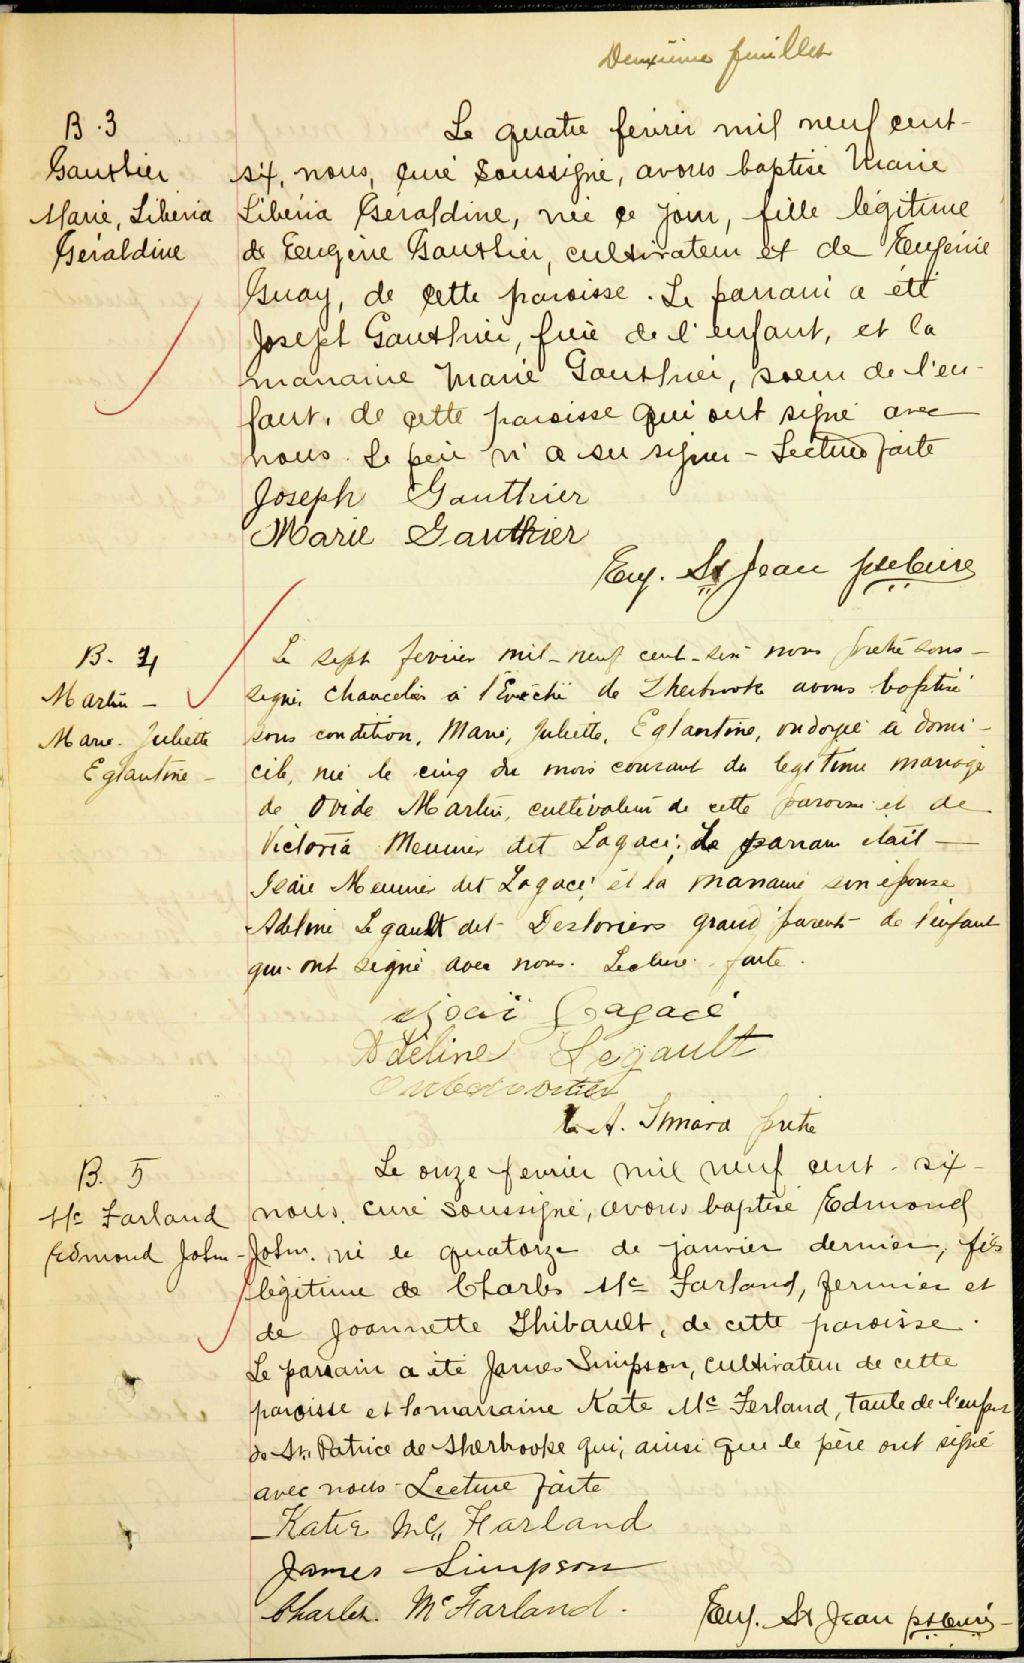 Deuxième feuillet
B. 3
Gauthier
Marie, Libéria
Géraldine
Le quatre février mil neuf cent-
six, nous, curé soussigné, avons baptisé Marie
Libéria Géraldine, née ce jour, fille légitime
de Eugène Gauthier, cultivateur et de Eugénie
Guay, de cette paroisse. Le parrain a été
Joseph Gauthier, frère de l'enfant, et la
marraine Marie Gauthier, soeur de l'en-
fant, de cette paroisse qui ont signé avec
nous. Le père n'a su signer - Lecture faite
Joseph Gauthier
Marie Gauthier
Eug. St Jean ptre Curé
B. 4
Martin -
Marie. Juliette
Eglantine -
Le sept février mil-neuf cent-six nous prêtre sous-
signé, chancelier à l'Evêché de Sherbrooke avons baptisé
sous condition, Marie, Juliette, Eglantine, ondoyée a domi-
cile, née le cinq du mois courant du legitime mariage
de Ovide Martin, cultivateur de cette paroisse et de
Victoria Meunier dit Lagacé; Le parrain était —
Isaïe Meunier dit Lagacé et la marraine son épouse
Adeline Legault dit Desloriers grand parents de l'enfant
qui ont signé avec nous. Lecture faite.
Isaï Lagacé
Adéline Légault
A. Simard prêtre
B. 5
Mc Farland
Edmond John -
Le onze février mil neuf cent-six-
nous, curé soussigné, avons baptisé Edmond
John, né le quatorze de janvier dernier, fils
légitime de Charles Mc Farland, fermier et
de Joannette Thibault, de cette paroisse.
Le parrain a été James Simpson, cultivateur de cette
paroisse et la marraine Kate Mc Ferland, tante de l'enfant
de St. Patrice de Sherbrooke qui, ainsi que le père ont signé
avec nous - Lecture faite
Katie Mc Farland
James Simpson
Charles. McFarland.
Eug. St Jean ptre Curé -